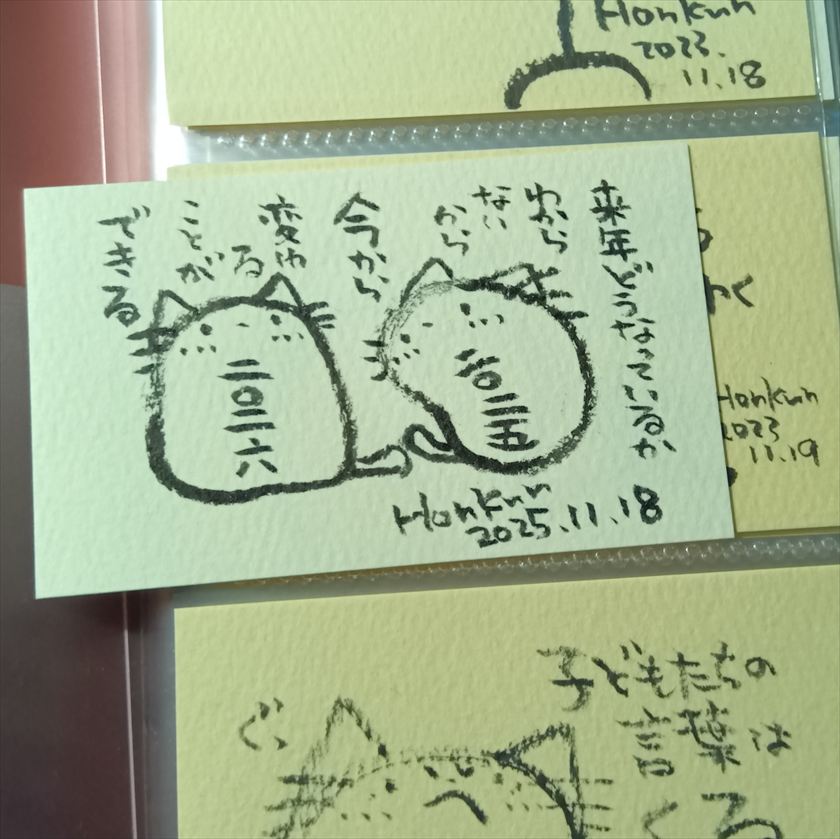 Honkun
2023.
11.18
来年どうなっているか
わから
ない
から
今から
変わ
る
ことが
できる
二〇二五
二〇二六
Honkun
2025.11.18
Honkun
2023
11.19
子どもたちの
言葉は